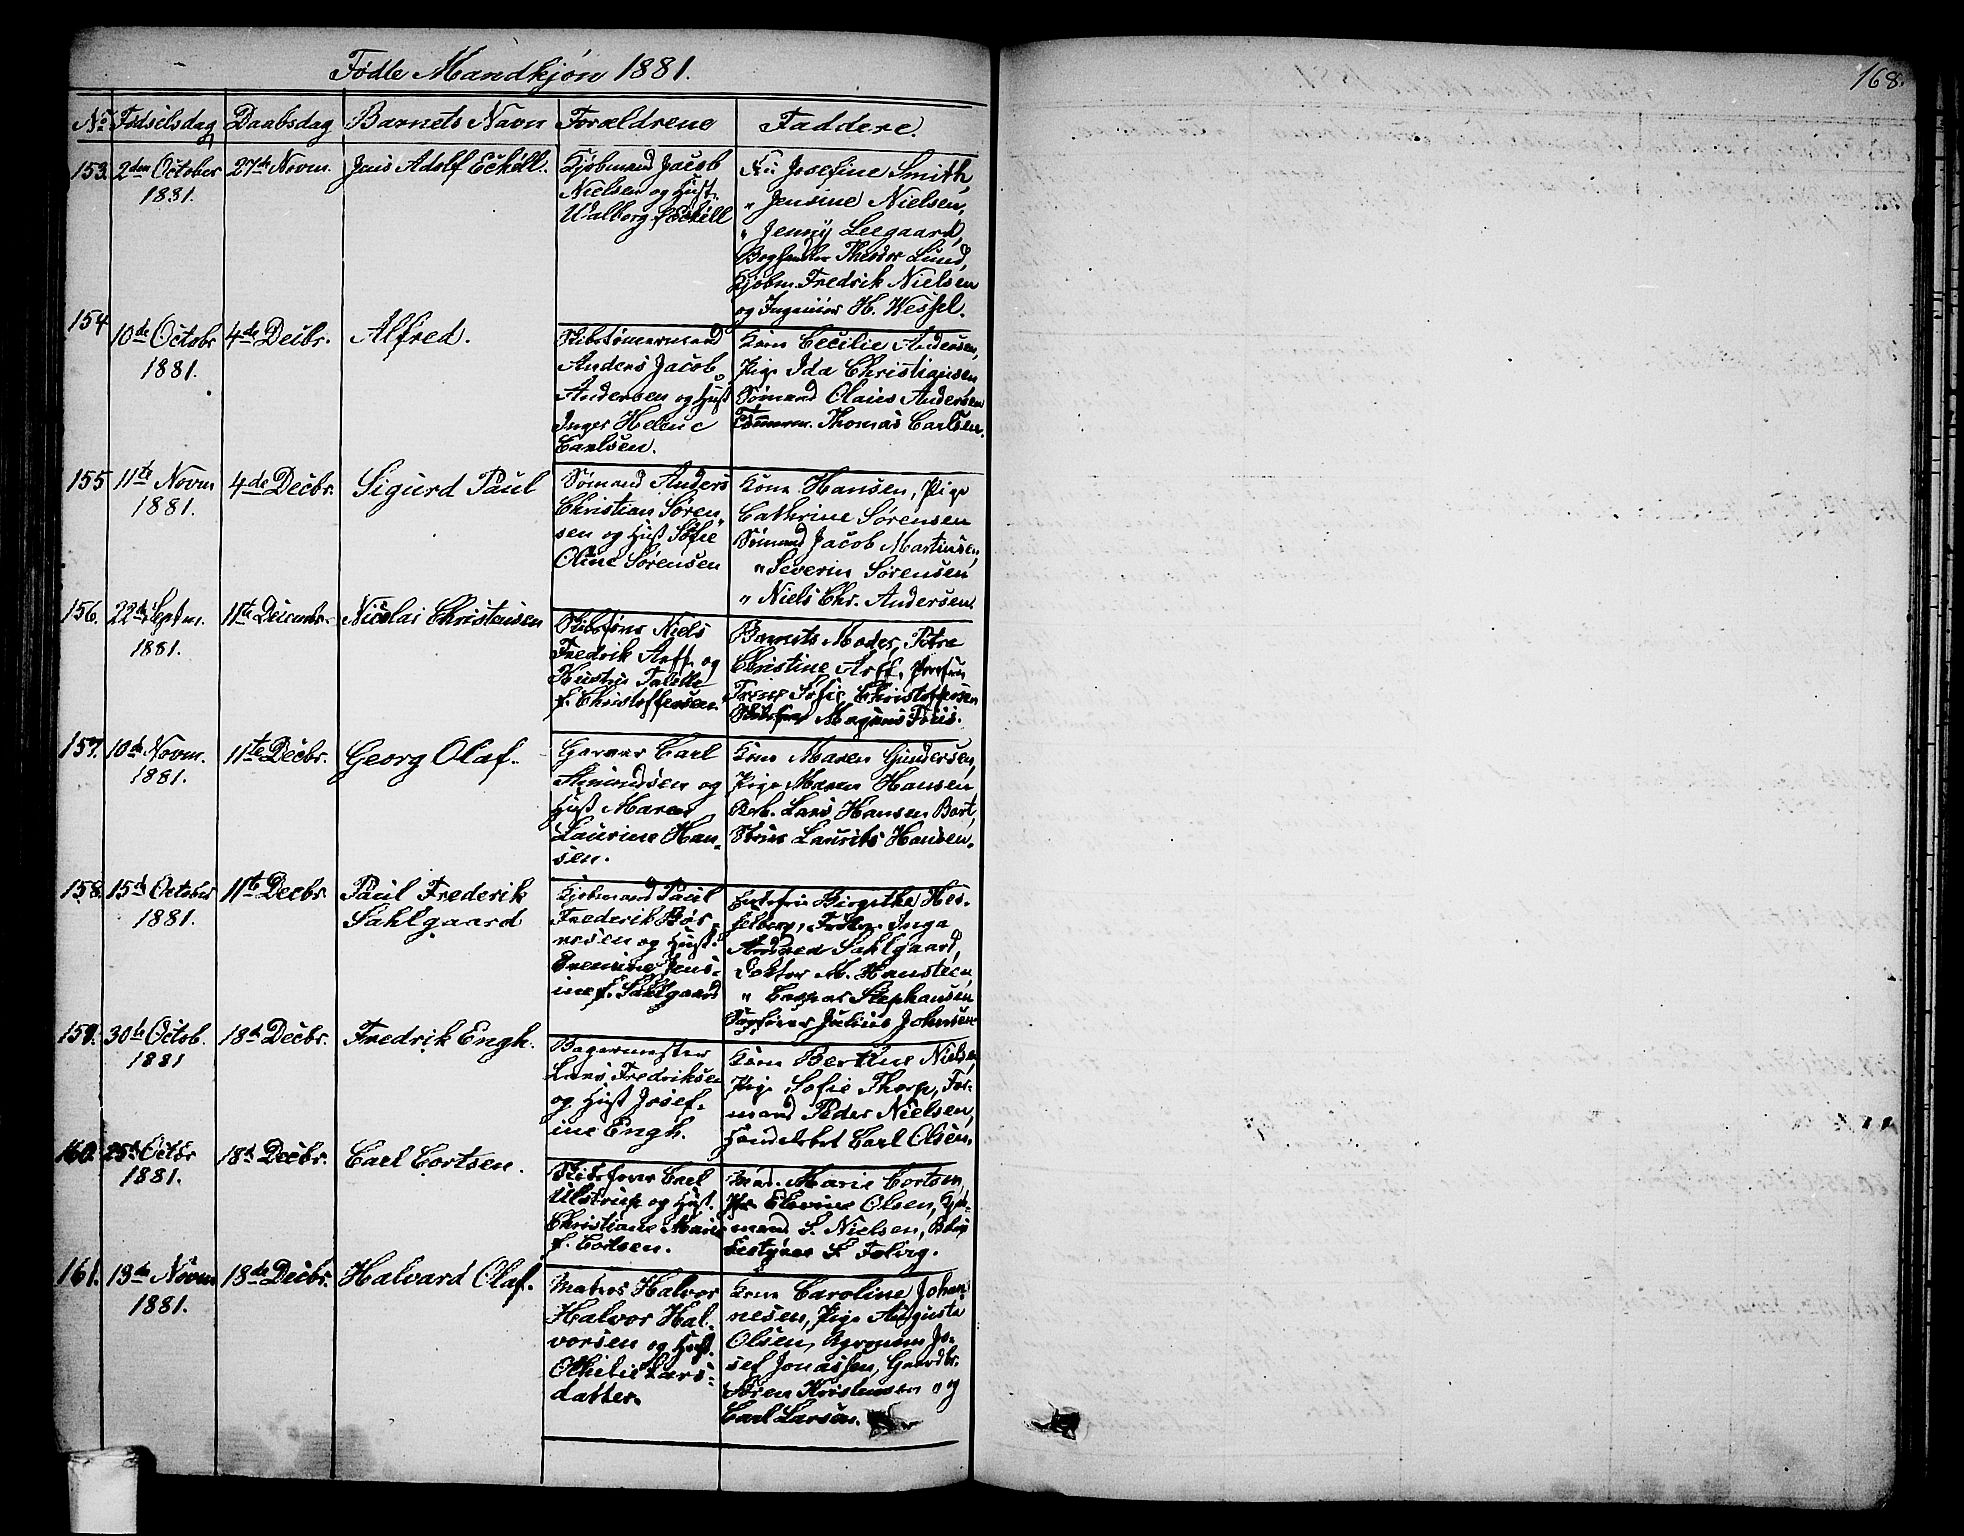 Fødte Mandkjøn 1881.
168.
No Fødselsdag Daabsdag Barnets Navn Forældrene Faddere.
153. 2den October 1881. 27de Novm. Jens Adolf Eckell.
Kjøbmand Jacob
Nielsen og Hust.
Valborg f. Eckell
Frk Josefine Smith,
" Jensine Nielsen,
" Jenny Leegaard,
Boghandler Theodor Lund,
Kjøbm. Fredrik Nielsen
og Ingeniør H. Wessel.
154 10de Octobr 1881. 4de Decbr. Alfred.
Skibstømmermand
Anders Jacob
Andersen og Hust
Inger Helene
Carlsen.
Kone Cecilie Andersen,
Pige Ida Christiansen
Sømand Olaus Andersen
Tømmerm. Thomas Carlsen.
155 11te Novm 1881. 4de Decbr. Sigurd Paul
Sømand Anders
Christian Søren-
sen og Hust Sofie
Oline Sørensen
Kone Hansen, Pige
Cathrine Sørensen
Sømand Jacob Martinsen,
" Severin Sørensen
" Niels Chr. Andersen.
156. 22de Septm. 1881. 11te Decembr. Nicolai Christensen
Skibsfører Niels
Fredrik Arff og
Hustru Talette
f. Christoffersen.
Barnets Moder, Petre
Christine Arff,
Trine Sofie Christoffersen
Skibsfører Magnus Friis.
157. 10de Novm. 1881. 11te Decbr. Georg Olaf.
Garver Carl
Amundsen og
Hust Maren
Laurine Han-
sen.
Kone Maren Gundersen,
Pige Maren Hansen,
Arb. Lars Hansen Bort,
Laurits Hansen.
158. 15de October 1881. 11te Decbr. Paul Frederik Sahlgaard
Kjøbmand Paul
Frederik Bør-
resen og Hust.
Jens-
ine f. Sahlgaard
Enkefru Birgithe Hes-
selberg, Frøken Inga
Andrea Sahlgaard,
Doktor M. Hansteen,
" Caspar Stephansen
Sagfører Julius Johnsen
159. 30te Octob. 1881 18de Decbr. Fredrik Engh.
Bagermester
Lars Fredriksen
og Hust Josef-
ine Engh.
Kone Bertine Nielsen,
Pige Sofie Thorp, For-
mand Peder Nielsen,
Handelsbet Carl Olsen.
160. 25de Octbr 1881. 18de Decbr. Carl Cortsen.
Skibsfører Carl
Ulstrup og Hust.
Christiane Marie
f. Cortsen.
Mad. Marie Cortsen,
Olsen, Kjøb-
mand S. Nielsen,
161. 13de Novm 1881. 18de Decbr. Halvard Olaf.
Matros Halvor
Halvor Hal-
vorsen og Hust.
Othelie Lars-
datter.
Kone Caroline Johan
nesen, Pige Augusta
Olsen, Jo-
sef Jonassen, Gaardbr.
Søren Kristensen og
Carl Larsen.